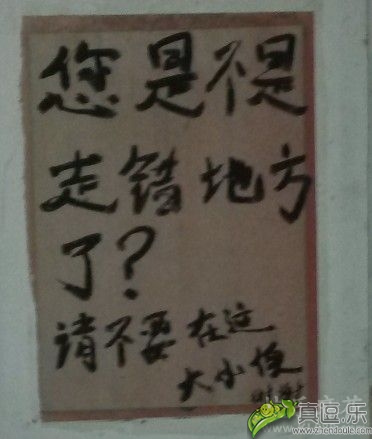 您是不是
走错地方
了？
请不要在这
大小便
真逗乐
www.zhendoule.com